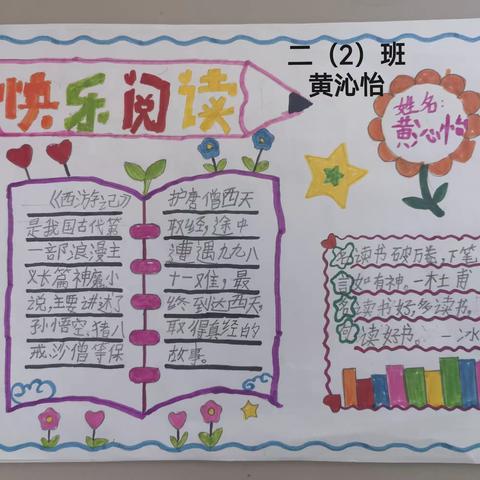 二（2）班
黄沁怡
快乐阅读
姓名:
黄沁怡
《西游记》
是我国古代第
一部浪漫主
义长篇神魔小
说,主要讲述了
孙悟空、猪八
戒、沙僧等保
护唐僧西天
取经,途中
遭遇九九八
十一难，最
终到达西天,
取得真经的
故事。
名言名句
读书破万卷,下笔
如有神。一杜甫
读书好,多读书,
读好书。一冰